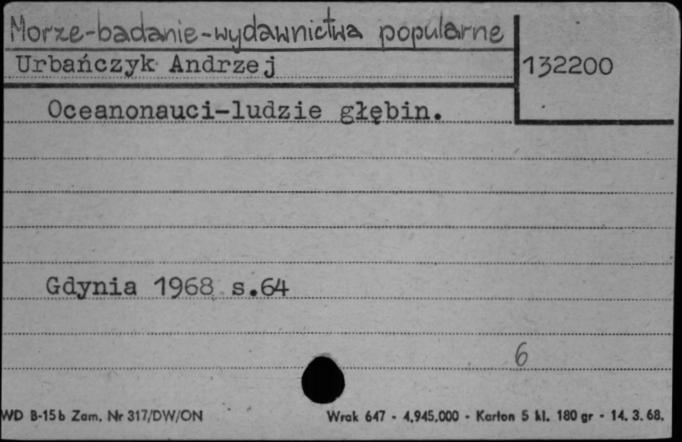 Morze-badanie-wydawnictwa popularne
Urbańczyk Andrzej
132200
Oceanonauci-ludzie głębin.
Gdynia 1968 s.64
6
WD B-15b Zam. Nr 317/DW/ON
Wrak 647 - 4,945,000 - Karton 5 kl. 180 gr - 14. 3. 68.